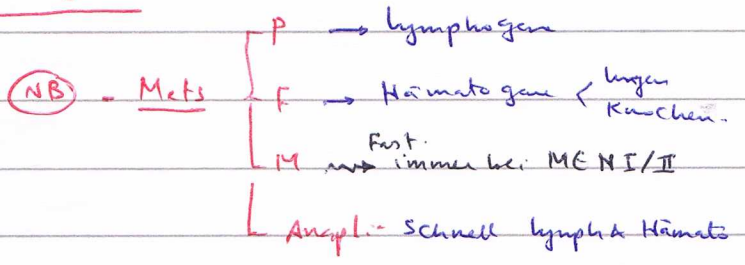 P → lymphogen
NB - Mets F → Hämatogen < Lungen
Knochen.
Fast.
M → immer bei MEN I/II
Anapl. - Schnell lymph & Hämato